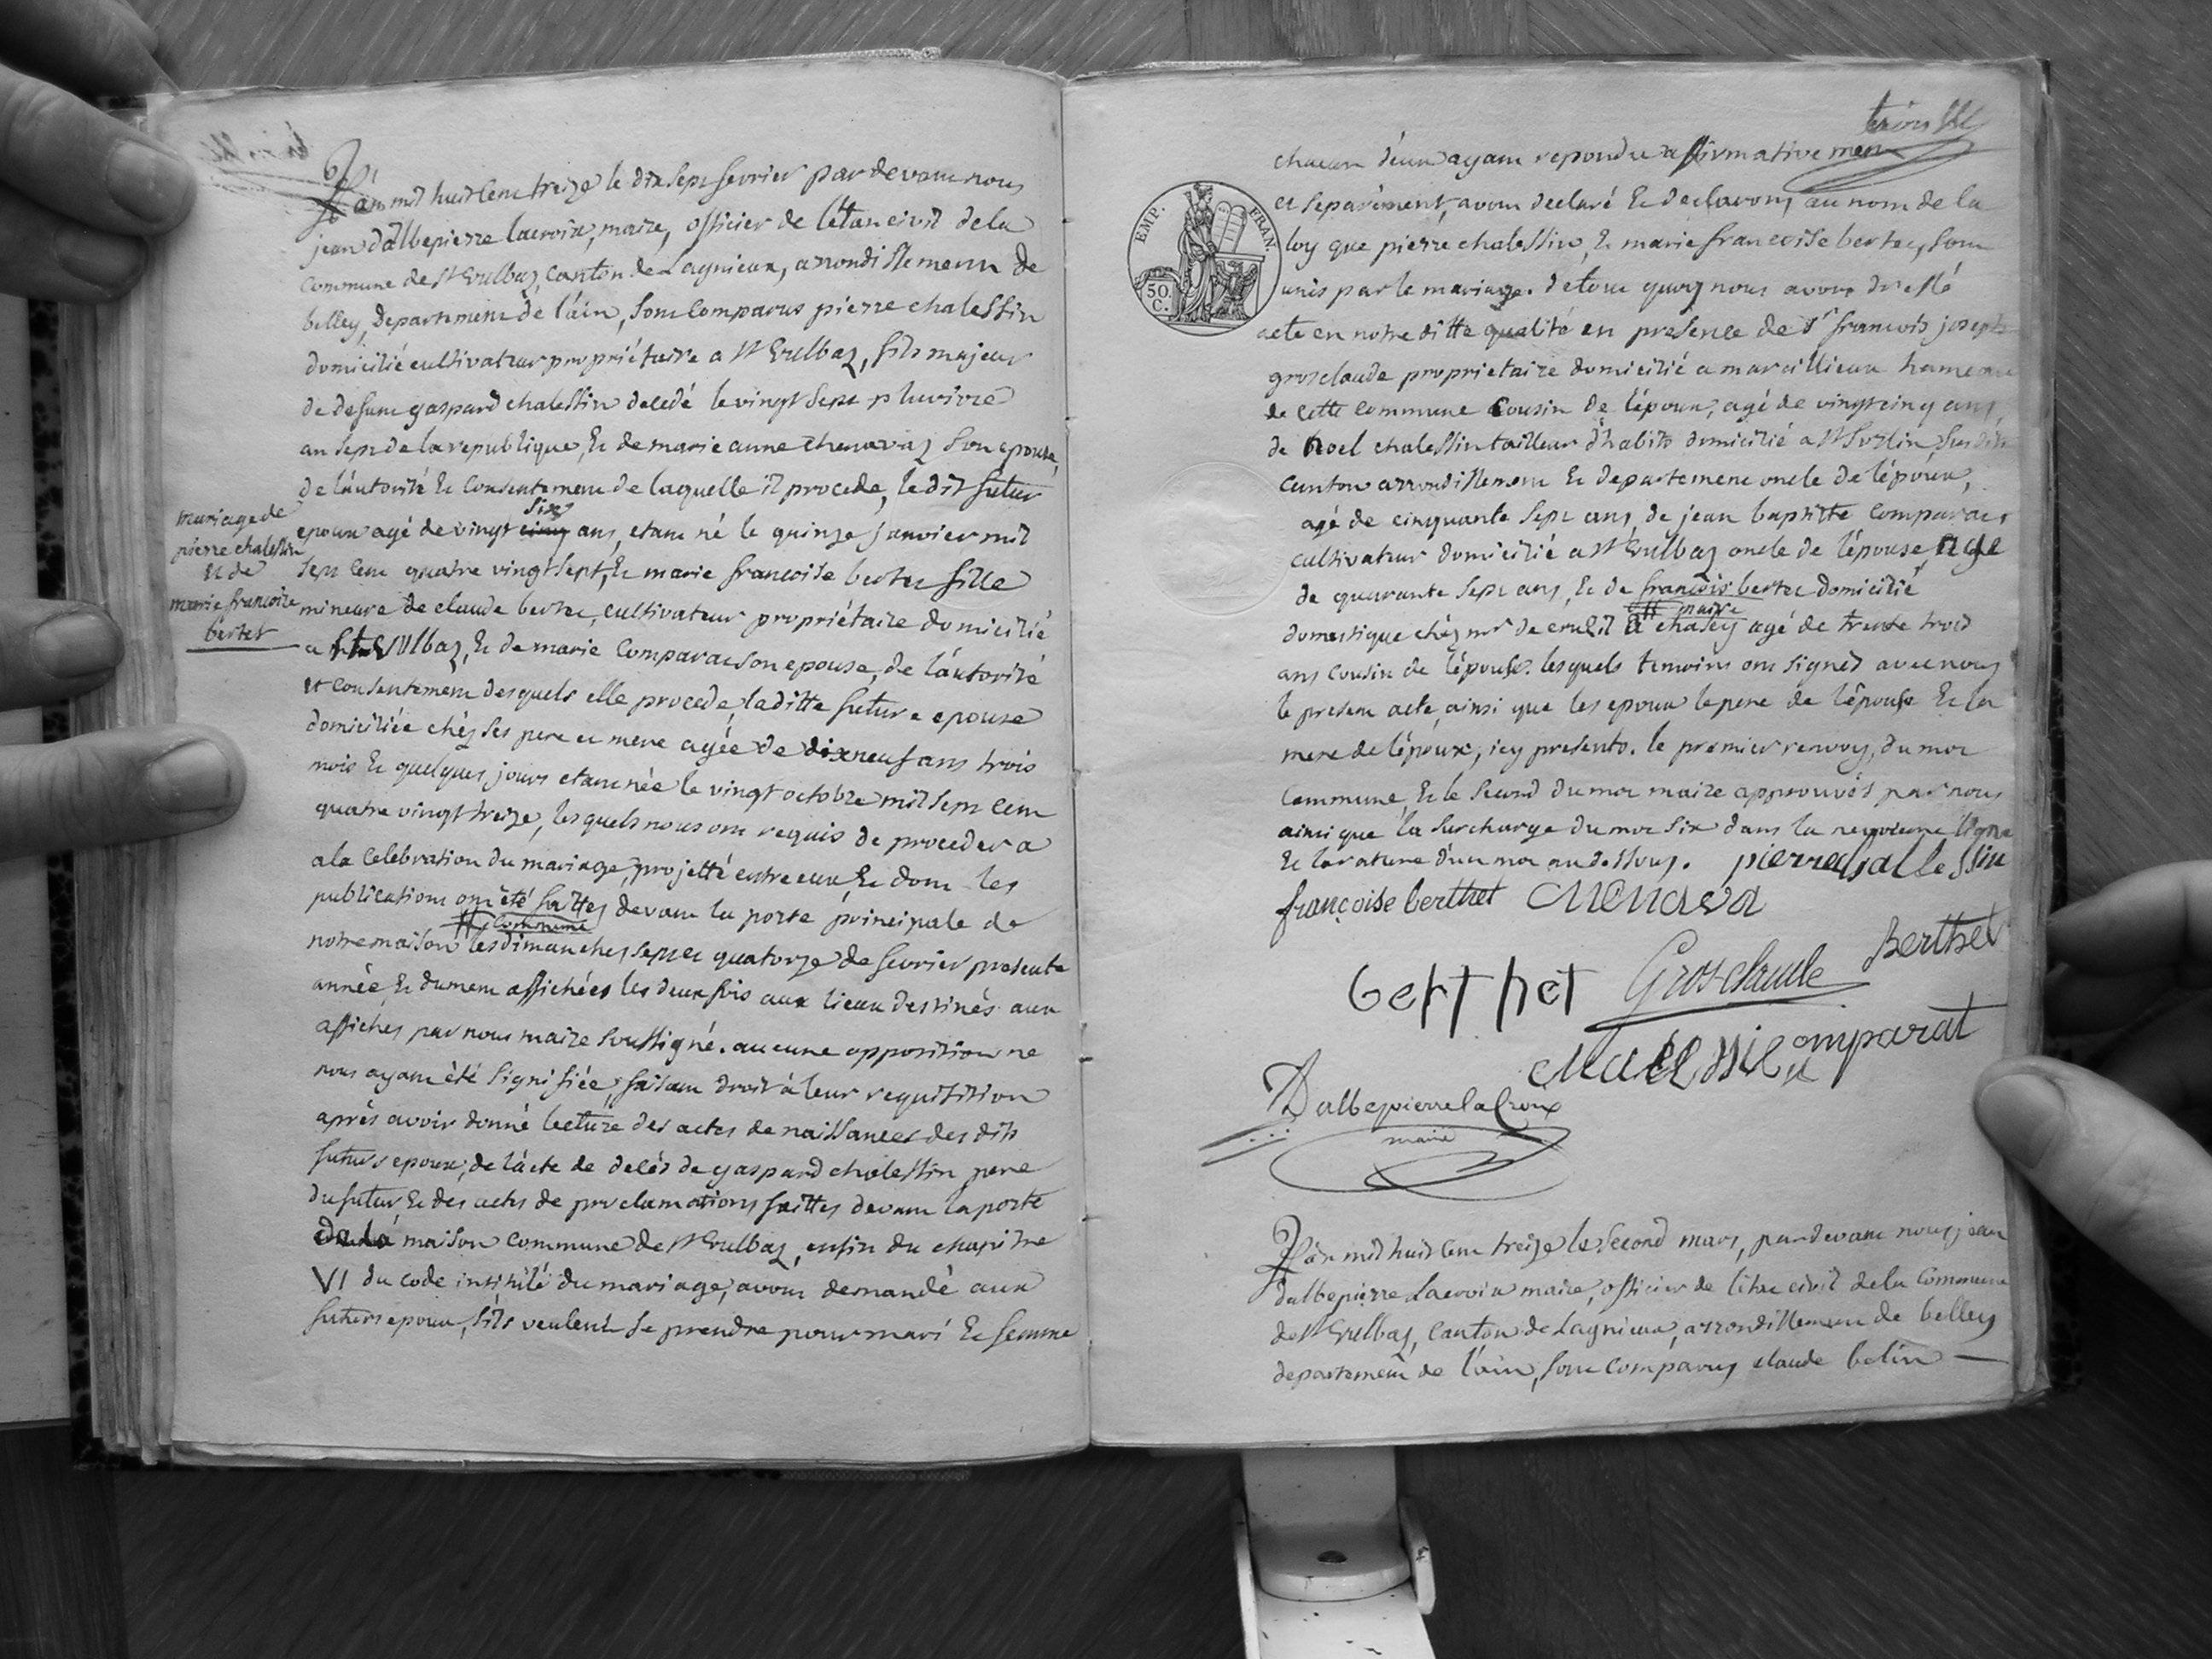 L'an mil huit cent treize le dix sept fevrier par devant nous
jean dalbepierre lacroix, maire, officier de letat civil de la
commune de St Vulbaz, canton de Lagnieux, arrondissement de
belley, departement de l'ain, sont comparus pierre chalessin
domicilié cultivateur propriétaire a St Vulbaz, fils majeur
de defunt gaspard chalessin decedé le vingt sept pluvivre
an sept de la republique, et de marie anne chenavaz son epouse,
de l'autorité et consentement de laquelle il procede, le dit futur
six
epoux agé de vingt cinq ans, etant né le quinze janvier mil
sept cent quatre vingt sept, et marie francoise bertet fille
mineure de claude bertet, cultivateur propriétaire domicilié
a St Vulbaz, et de marie comparat son epouse, de l'autorité
et consentement desquels elle procede, laditte future epouse
domiciliée chés ses pere et mere agée de dix neuf ans trois
mois et quelques jours etant née le vingt octobre mil sept cent
quatre vingt treize, lesquels nous ont requis de proceder a
a la celebration du mariage, projetté entre eux et dont les
publications ont été faittes devant la porte principale de
commune
notre maison les dimanches sept et quatorze de fevrier presente
année, et dument affichées les deux fois aux lieux destinés aux
affiches par nous maire soussigné. aucune opposition ne
nous ayant été signifiée, faisant droit à leur requisition
après avoir donné lecture des actes de naissances des dits
futurs epoux, de l'acte de decés de gaspard chalessin pere
du futur et des actes de proclamations faittes devant la porte
de la maison commune de St Vulbaz, enfin du chapitre
VI du code intitulé du mariage, avons demandé aux
futurs epoux, s'ils veulent se prendre pour mari et femme
mariage de
pierre chalessin
et de
marie francoise
bertet
trois
chacun d'eux ayant repondu affirmativement
et separément, avons declaré et declarons au nom de la
loy que pierre chalessin, et marie francoise bertet, sont
unis par le mariage. de tout quoy nous avons dressé
acte en notre ditte qualité en presence de Sr francois joseph
grosclaude proprietaire domicilié a marcillieux hameau
de cette commune cousin de l'époux, agé de vingt cinq ans,
de noel chalessin tailleur d'habits domicilié a St Sorlin susdit
canton arrondissement et departement oncle de l'époux,
agé de cinquante sept ans, de jean baptiste comparat
cultivateur domicilié a St Vulbaz oncle de l'épouse, agé
de quarante sept ans, et de francois bertet domicilié
maire
domestique chés mr de a chasey agé de trente trois
ans cousin de l'épouse. lesquels temoins ont signés avec nous
le present acte, ainsi que les epoux le pere de l'épouse et la
mere de l'époux, icy presents. le premier renvoy, du mot
commune, et le second du mot maire approuvés par nous
ainsi que la surcharge du mot six dans la neuvieme ligne
et la rature d'un mot au dessous. pierre chalessin
françoise berthet chenava
berthet Grosclaude Berthet
chalessin comparat
Dalbepierre la Croix
maire
L'an mil huit cent treize le second mars, par devant nous jean
dalbepierre Lacroix maire, officier de l'etat civil de la commune
de St Vulbaz, canton de Lagnieux, arrondissement de belley
departement de l'ain, sont comparus claude belin
EMP. FRAN.
50. C.